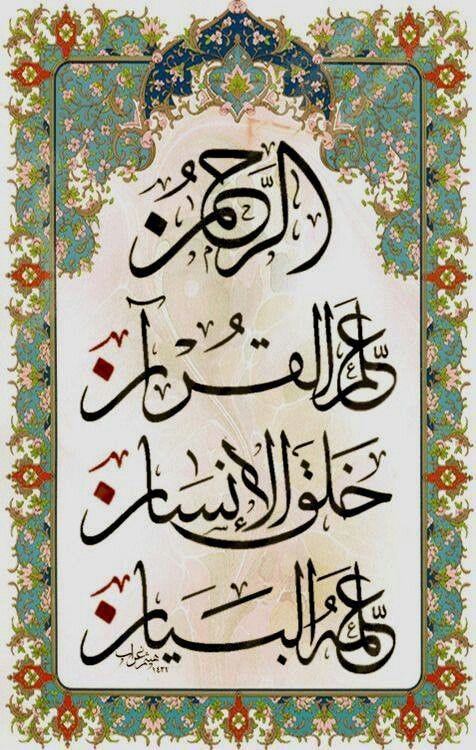 الرَّحْمٰنُ
عَلَّمَ الْقُرْآنَ
خَلَقَ الْإِنْسَانَ
عَلَّمَهُ الْبَيَانَ